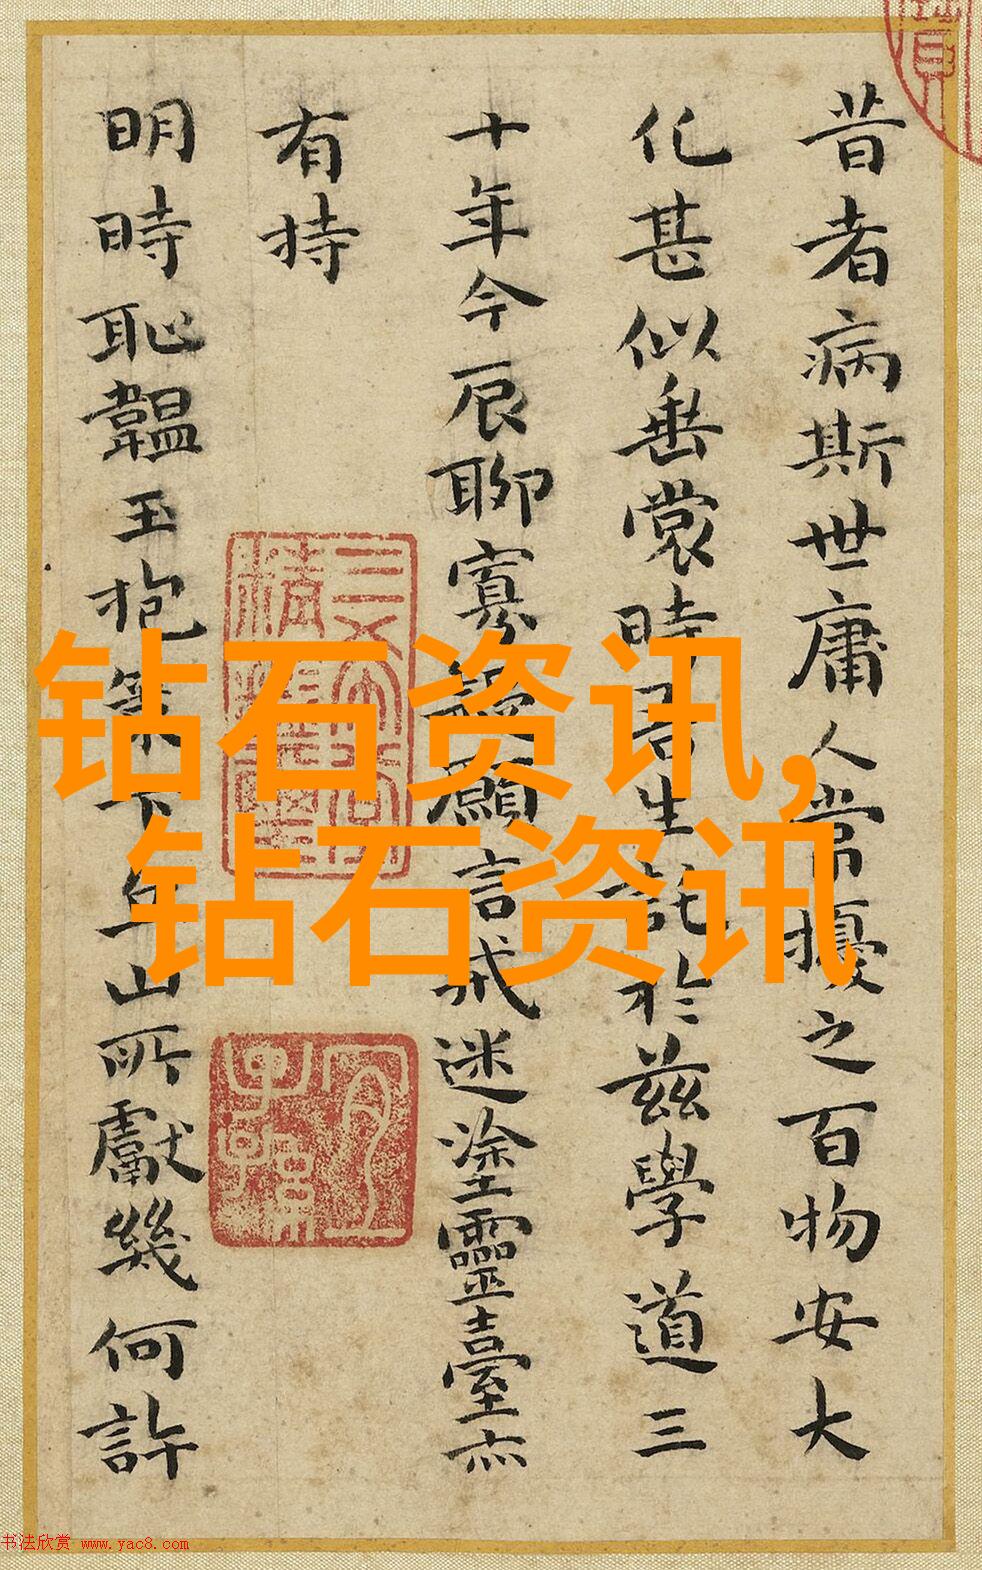 昔者病斯世庸人常擾之百物安大
化甚似垂裳時吾生託於茲學道三
十年今辰聊寡願言戒迷塗靈臺亦
有持
明時恥韞玉抱策下山所獻幾何許
钻石资讯,
钻石资讯
书法欣赏 www.yac8.com